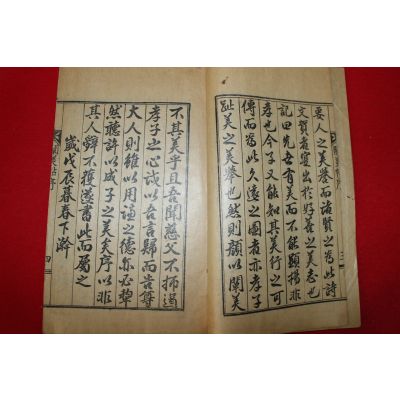 要人之美擧而諸賢之爲此詩
文賀者寔出於好善之美志也
記曰先有美而不能顯揚非
孝也今子又能知其美行之可
傳而爲此久遠之圖者亦孝子
趾美之美擧也然則顔以闡美
三
不其美乎且吾聞慈父不過
孝子之心誠以吾言歸而告尊
大人則雖以用謙之德亦必犂
然聽許以成子之美矣序以非
其人辭不獲遂書此而屬之
歲戊辰暮春下澣
四